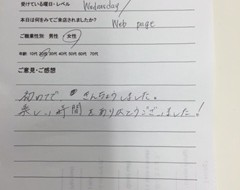 受けている曜日・レベル Wednesday /
本日は何をみてご来店されましたか? Web page
ご職業性別 男性 女性
年齢 10代 20代 30代 40代 50代 60代 70代
ご意見・ご感想
初めてで きんちょうしました。
楽しい時間をありがとうございました!